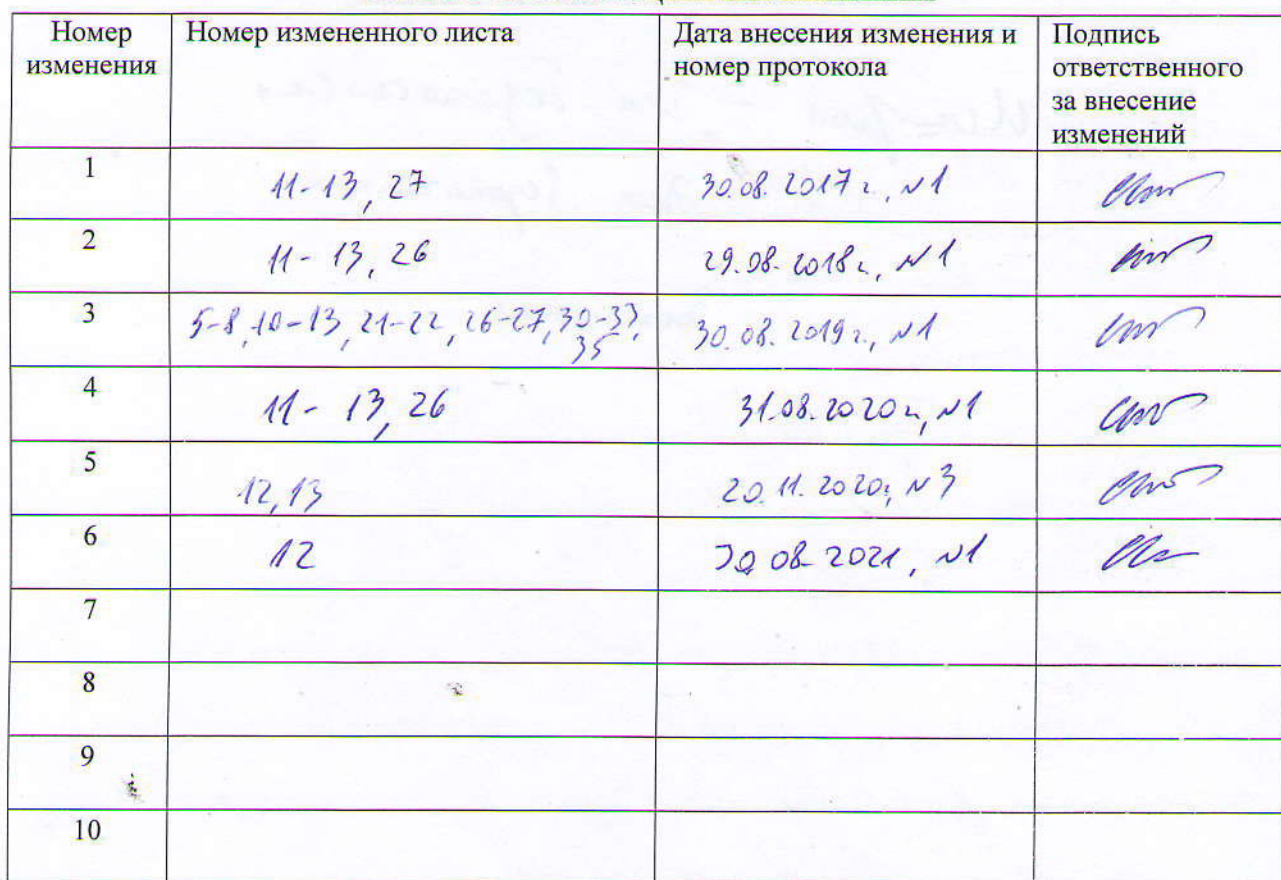 Номер изменения
Номер измененного листа
Дата внесения изменения и номер протокола
Подпись ответственного за внесение изменений
1
11-13, 27
30.08.2017 г., №1
2
11-13, 26
29.08.2018 г., №1
3
5-8, 10-13, 21-22, 26-27, 30-33,
35
30.08.2019 г., №1
4
11-13, 26
31.08.2020 г., №1
5
12, 13
20.11.2020г, №3
6
12
30.08.2021, №1
7
8
9
10